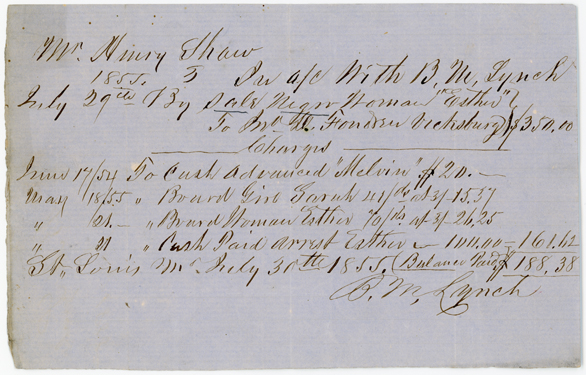 Mr. Henry Shaw
1855. In a/c With B. M. Lynch
July 29th By Sale Negro Woman "Esther"
To Fondren Vicksburg $350.00
Charges
June 17/54 To Cash Advanced "Melvin" $20.—
May 18/55 " Board Girl Sarah 41/ds at 3/- 15.37
" 21.— " Board Woman Esther 70/ds at 3/- 26.25
" 21 " Cash Paid Arrest Esther — 100.00 — 161.62
St. Louis Mo. July 30th 1855. (Balance Paid, $188.38
B. M. Lynch